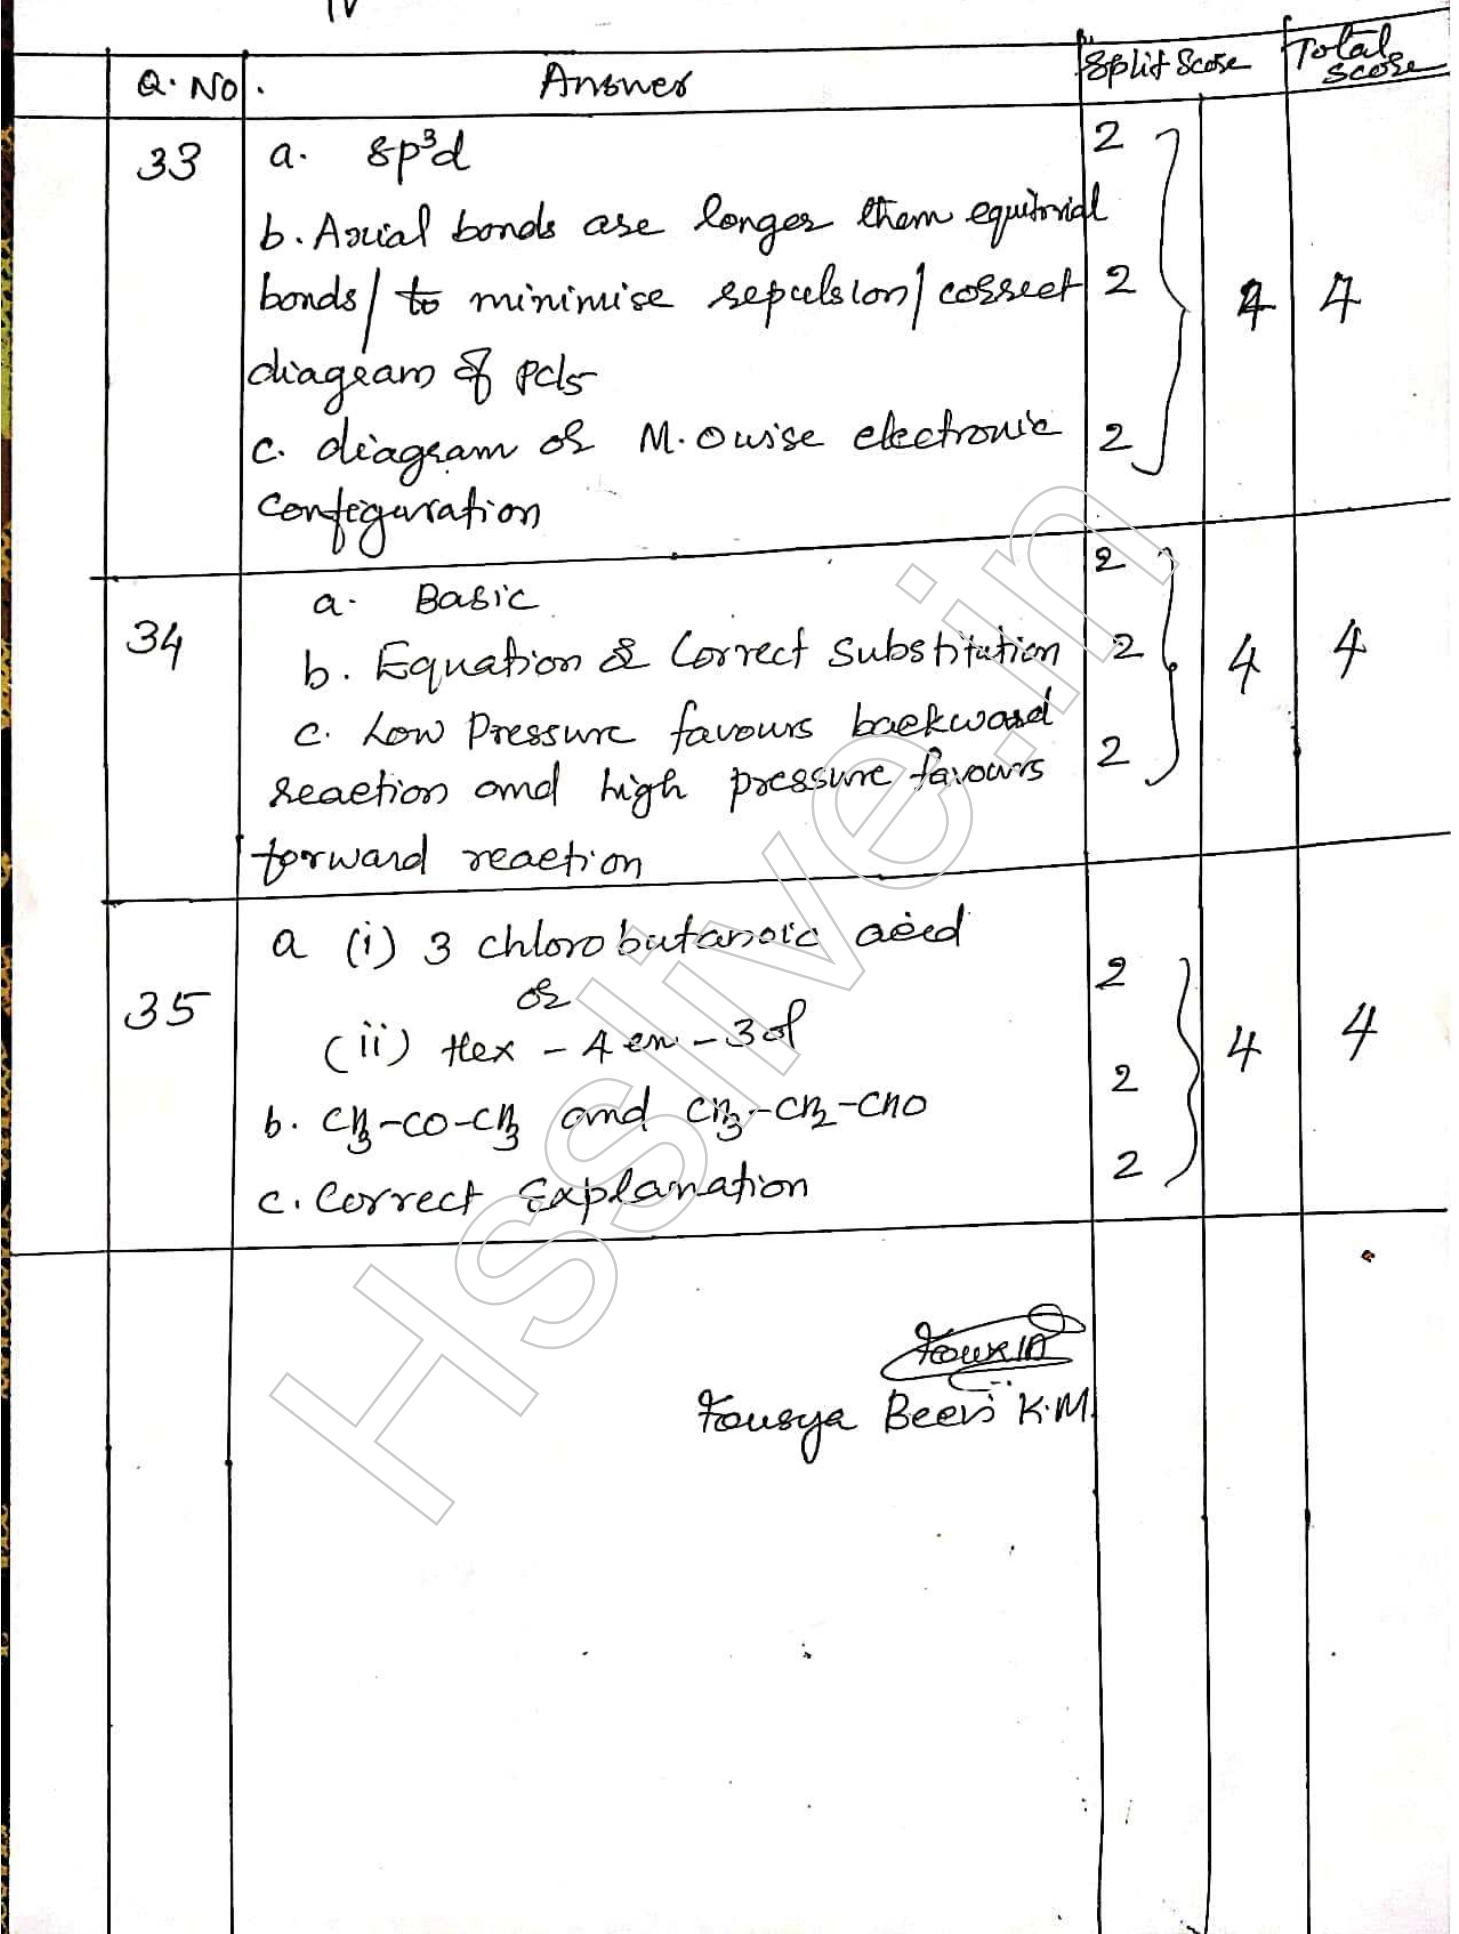 IV
Q. No. Answer Split Score Total Score
33 a. sp³d 2
b. Axial bonds are longer them equitorial
bonds / to minimise repulsion / correct 2 4 4
diagram of pcl5
c. diagram or M.O wise electronic 2
configuration
a. Basic 2
34 b. Equation & Correct Substitution 2 4 4
c. Low Pressure favours backward 2
reaction and high pressure favours
forward reaction
a (i) 3 chlorobutanoic acid 2
35 or
(ii) Hex - 4 en - 3 ol 4 4
b. CH3-CO-CH3 and CH3-CH2-CHO 2
c. Correct Explanation 2
Fousya Beevi K.M.
Hsslive.in